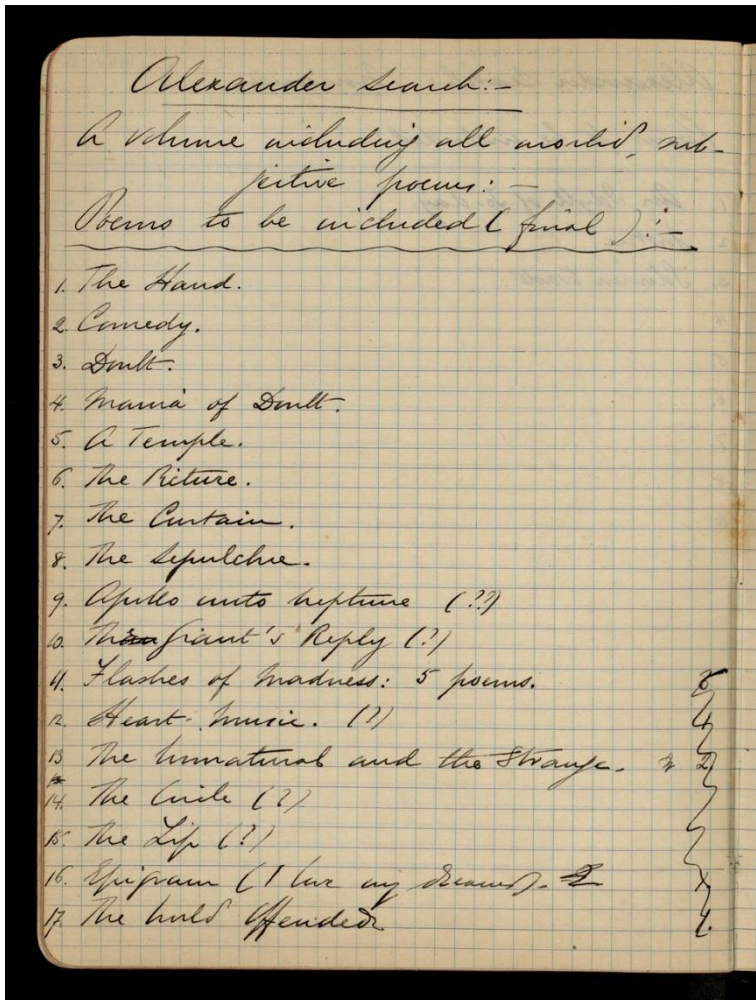 Alexander Search:—
A volume including all morbid, sub-
jective poems:—
Poems to be included (final):—
1. The Hand.
2. Comedy.
3. Doubt.
4. Mania of Doubt.
5. A Temple.
6. The Picture.
7. The Curtain.
8. The Sepulchre.
9. Apollo unto Neptune (??)
10. The Giant's Reply (?)
11. Flashes of Madness: 5 poems.
12. Heart-Music. (?)
13 The Unnatural and the Strange. 2
14. The Circle (?)
15. The Lip (?)
16. Epigram (I love my dreams).
17. The World Offended